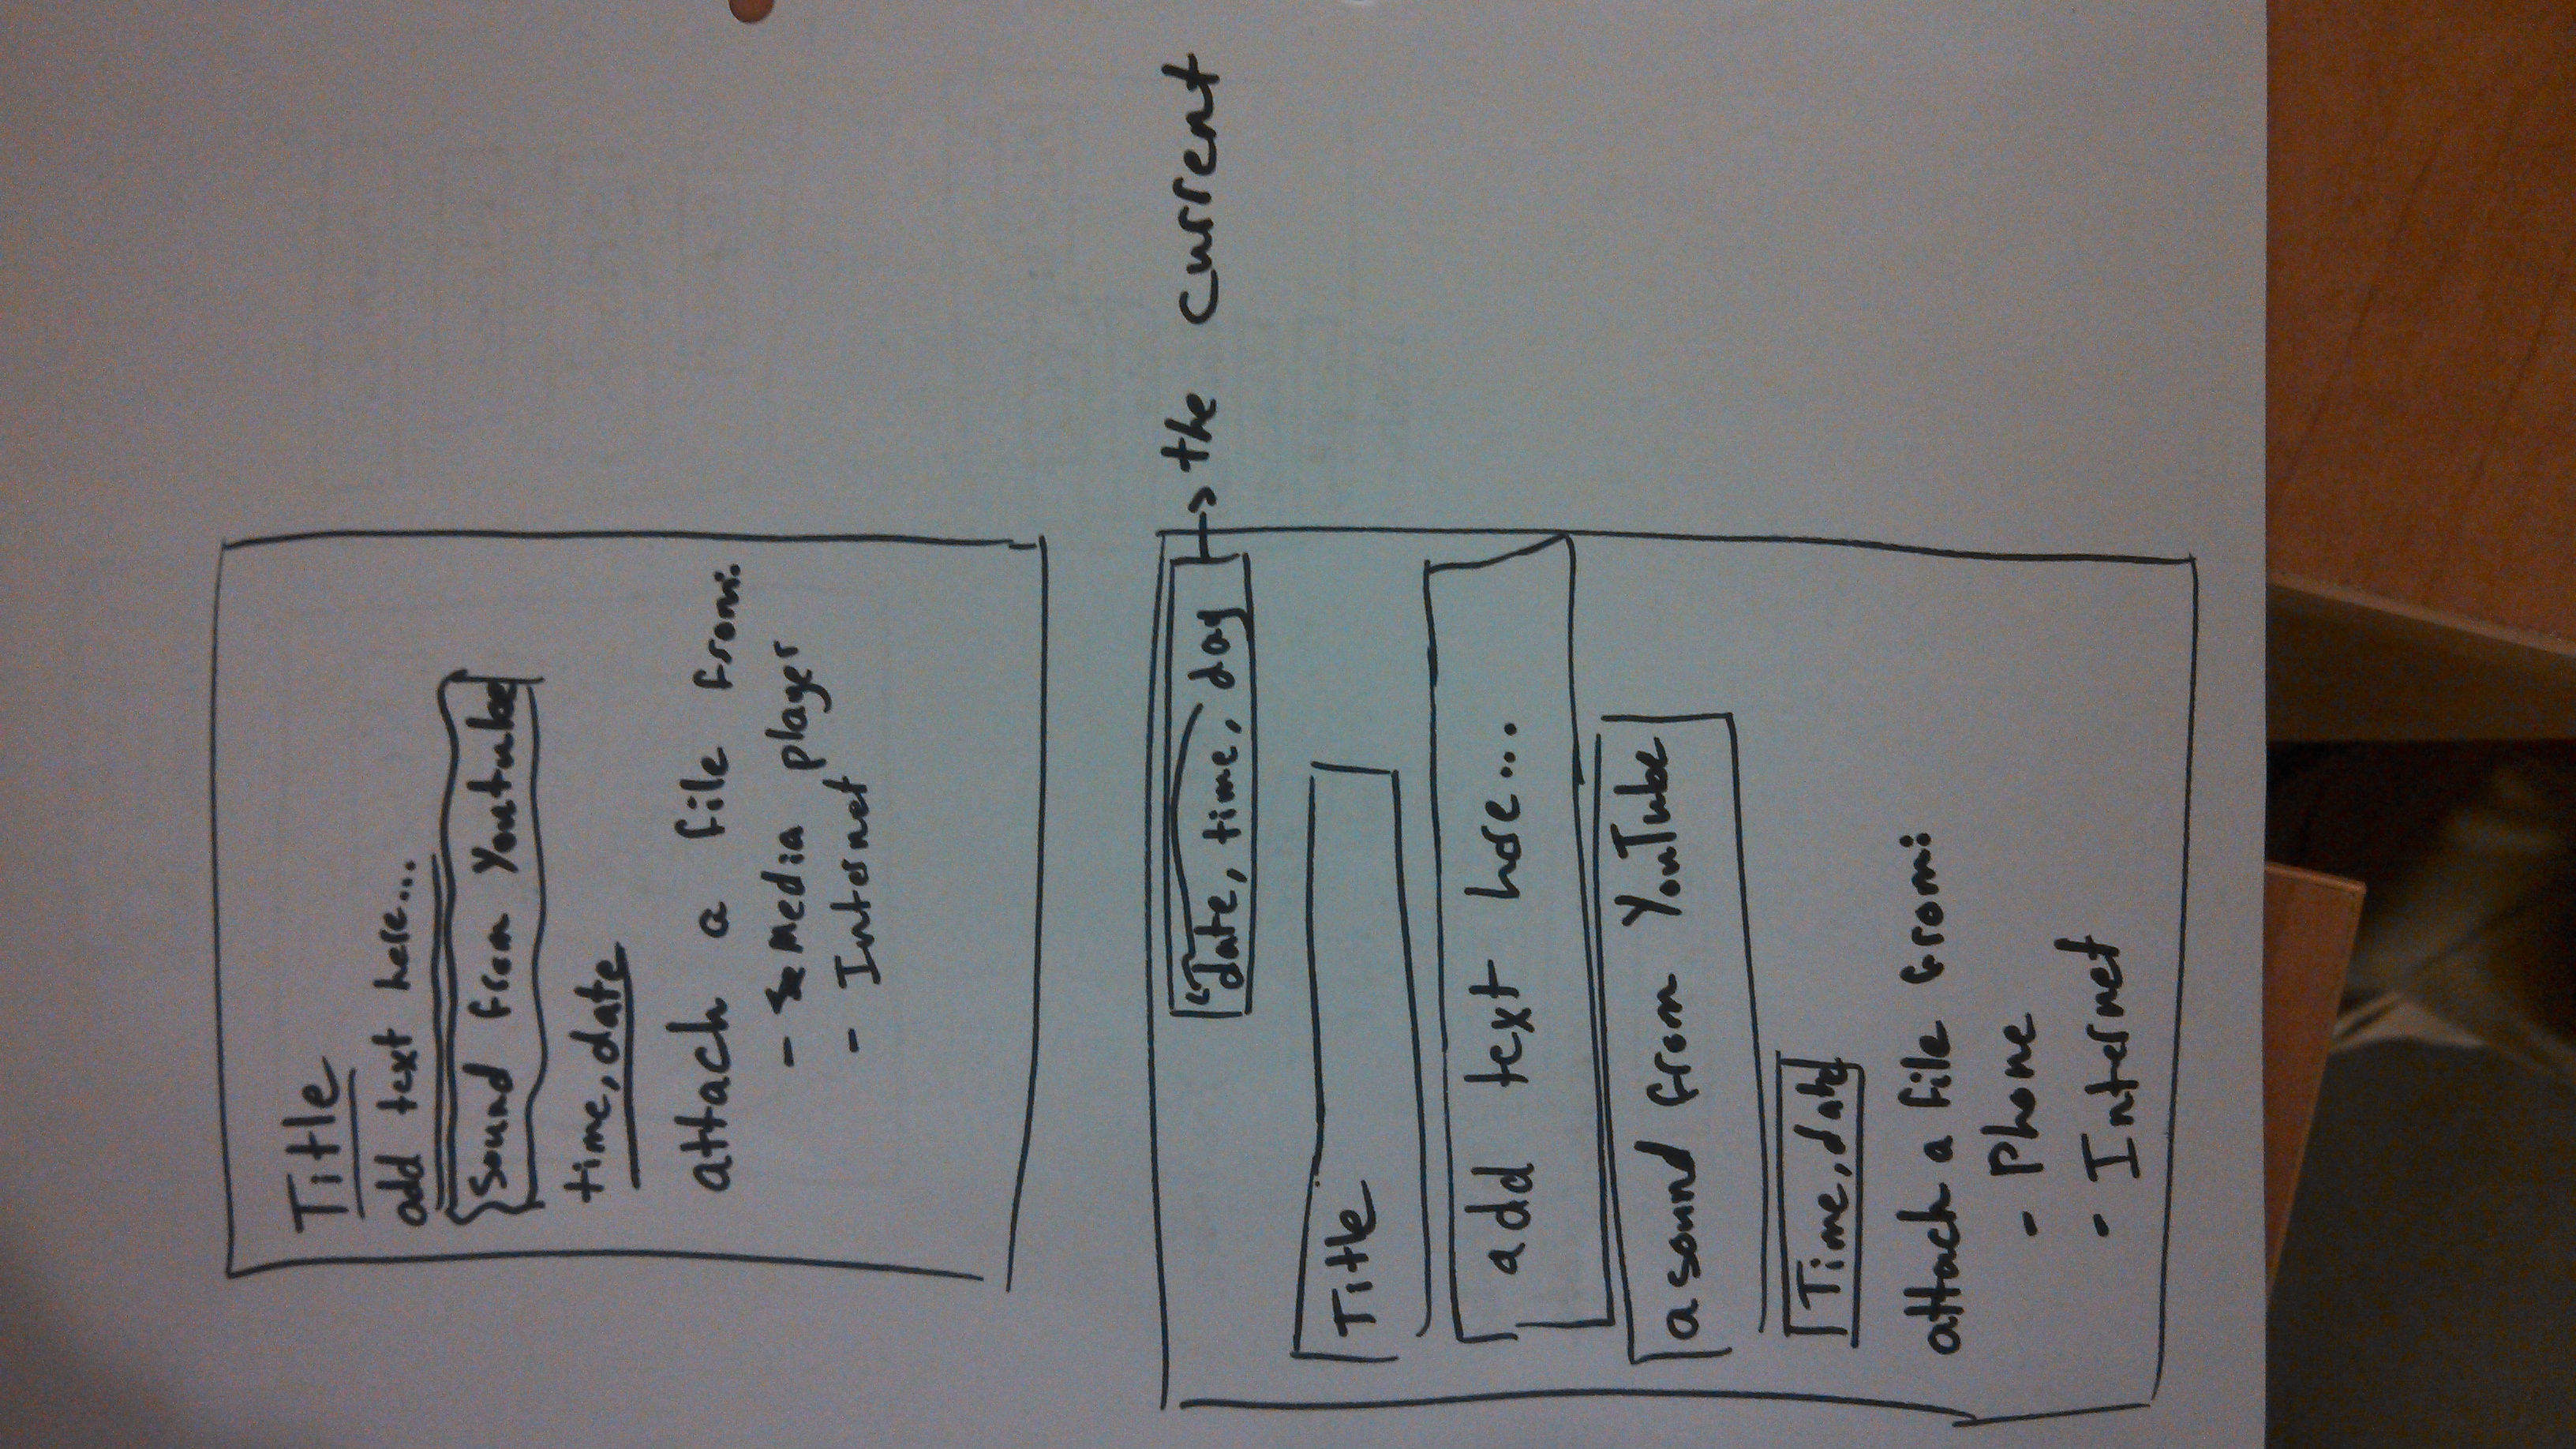 Title
add text here...
Sound from Youtube
time, date
attach a file from:
- Media player
- Internet
date, time, day → the current
Title
add text here...
a sound from YouTube
Time, date
attach a file from:
- Phone
- Internet